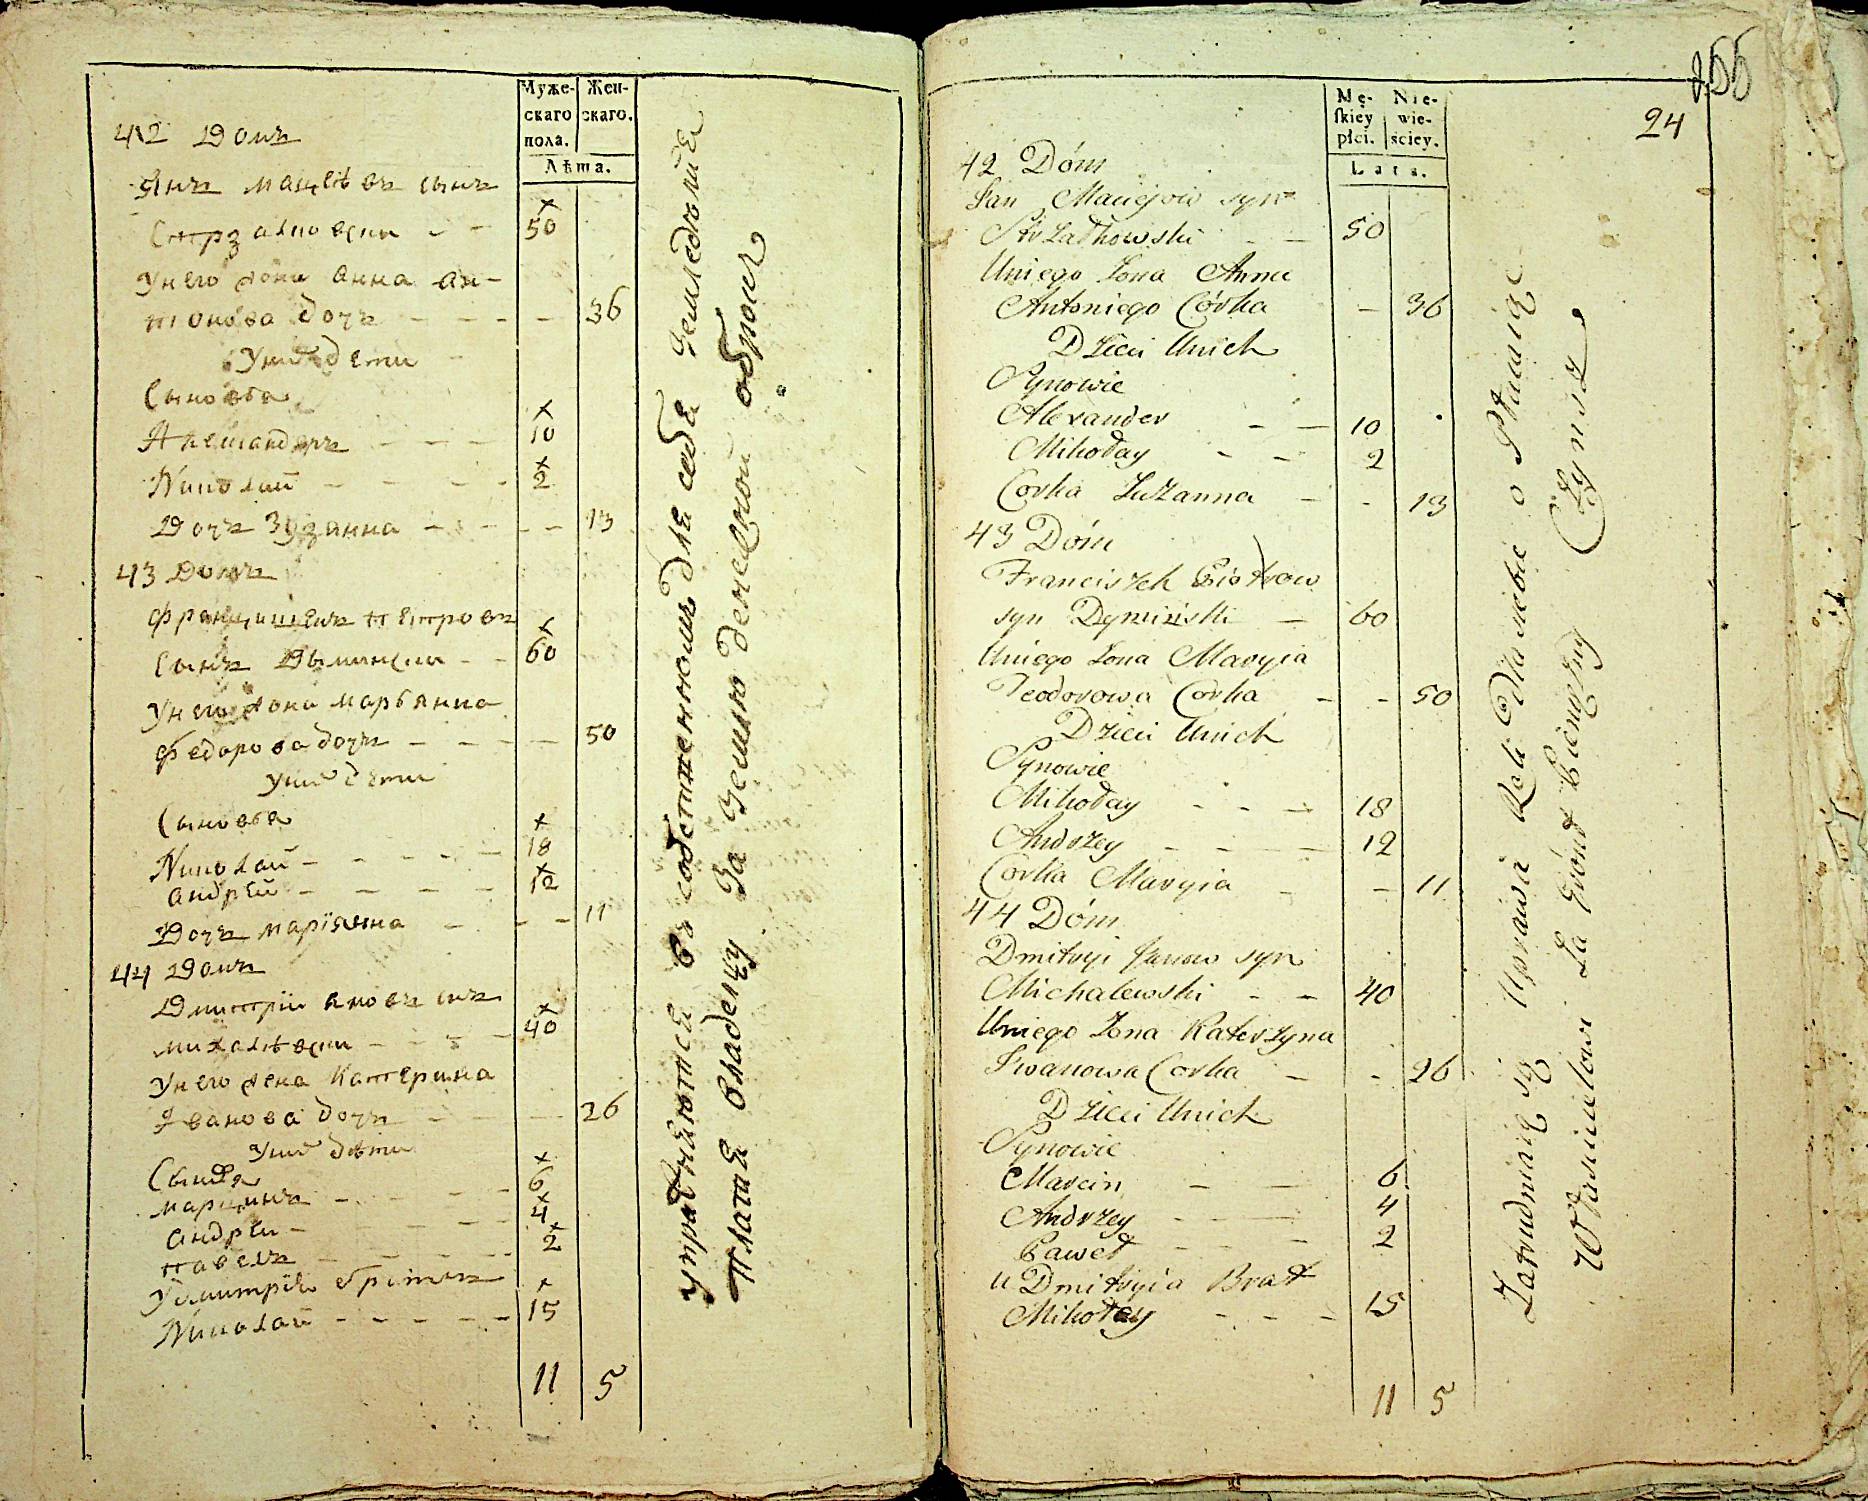 Муже-
скаго
пола.
Жен-
скаго.
Лѣта.
42 Домъ
Янъ Мацѣевъ сынъ
Стрзалковски - - 50
У него жона Анна Ан-
тонова дочъ - - - - 36
У них дети
Сыновья
Александеръ - - - 10
Николай - - - - 2
Дочъ Зузанна - - - - 13
43 Домъ
Францишекъ Петровъ
сынъ Дымински - - 60
У него жона Марьянна
Федорова дочъ - - - - 50
У них дети
Сыновья
Николай - - - - - 18
Андрѣй - - - - - 12
Дочъ Маріянна - - - 11
44 Домъ
Дмитрій Яновъ снъ
Михалѣвски - - - - 40
У него жена Катерина
Іванова дочъ - - - 26
У них дѣти
Сыновя
Марцинъ - - - - 6
Андрѣй - - - - 4
Павелъ - - - - - 2
У Дмитрія братъ
Николай - - - - - 15
11 5
упражняются въ собственномъ для себя земледѣлии
Платя владелцу за землю денежной оброкъ
255
24
Mę-
skiey
płci.
Nie-
wie-
sciey.
Lata.
42 Dóm
Jan Maciejow syn
Strzałkowski - - 50
U niego Zona Anna
Antoniego Córka - 36
Dzieci U nich
Synowie
Alexander - - 10
Mikołay - - 2
Corka Zuzanna - - 13
43 Dóm
Franciszek Piotrow
syn Dyminski - 60
U niego Zona Maryia
Teodorowa Corka - - 50
Dzieci U nich
Synowie
Mikołay - - - 18
Andrzey - - - 12
Corka Maryia - - 11
44 Dóm
Dmitryi Janow syn
Michalewski - - 40
U niego Zona Katerzyna
Iwanowa Corka - - 26
Dzieci U nich
Synowie
Marcin - - 6
Andrzey - - - 4
Paweł - - - 2
U Dmitryia Brat
Mikołay - - - 15
11 5
Zatrudniaią się Uprawą Roli Dla siebie o Płacaiąc
Włascicielowi Za Grónt Pieniężny Czynsz